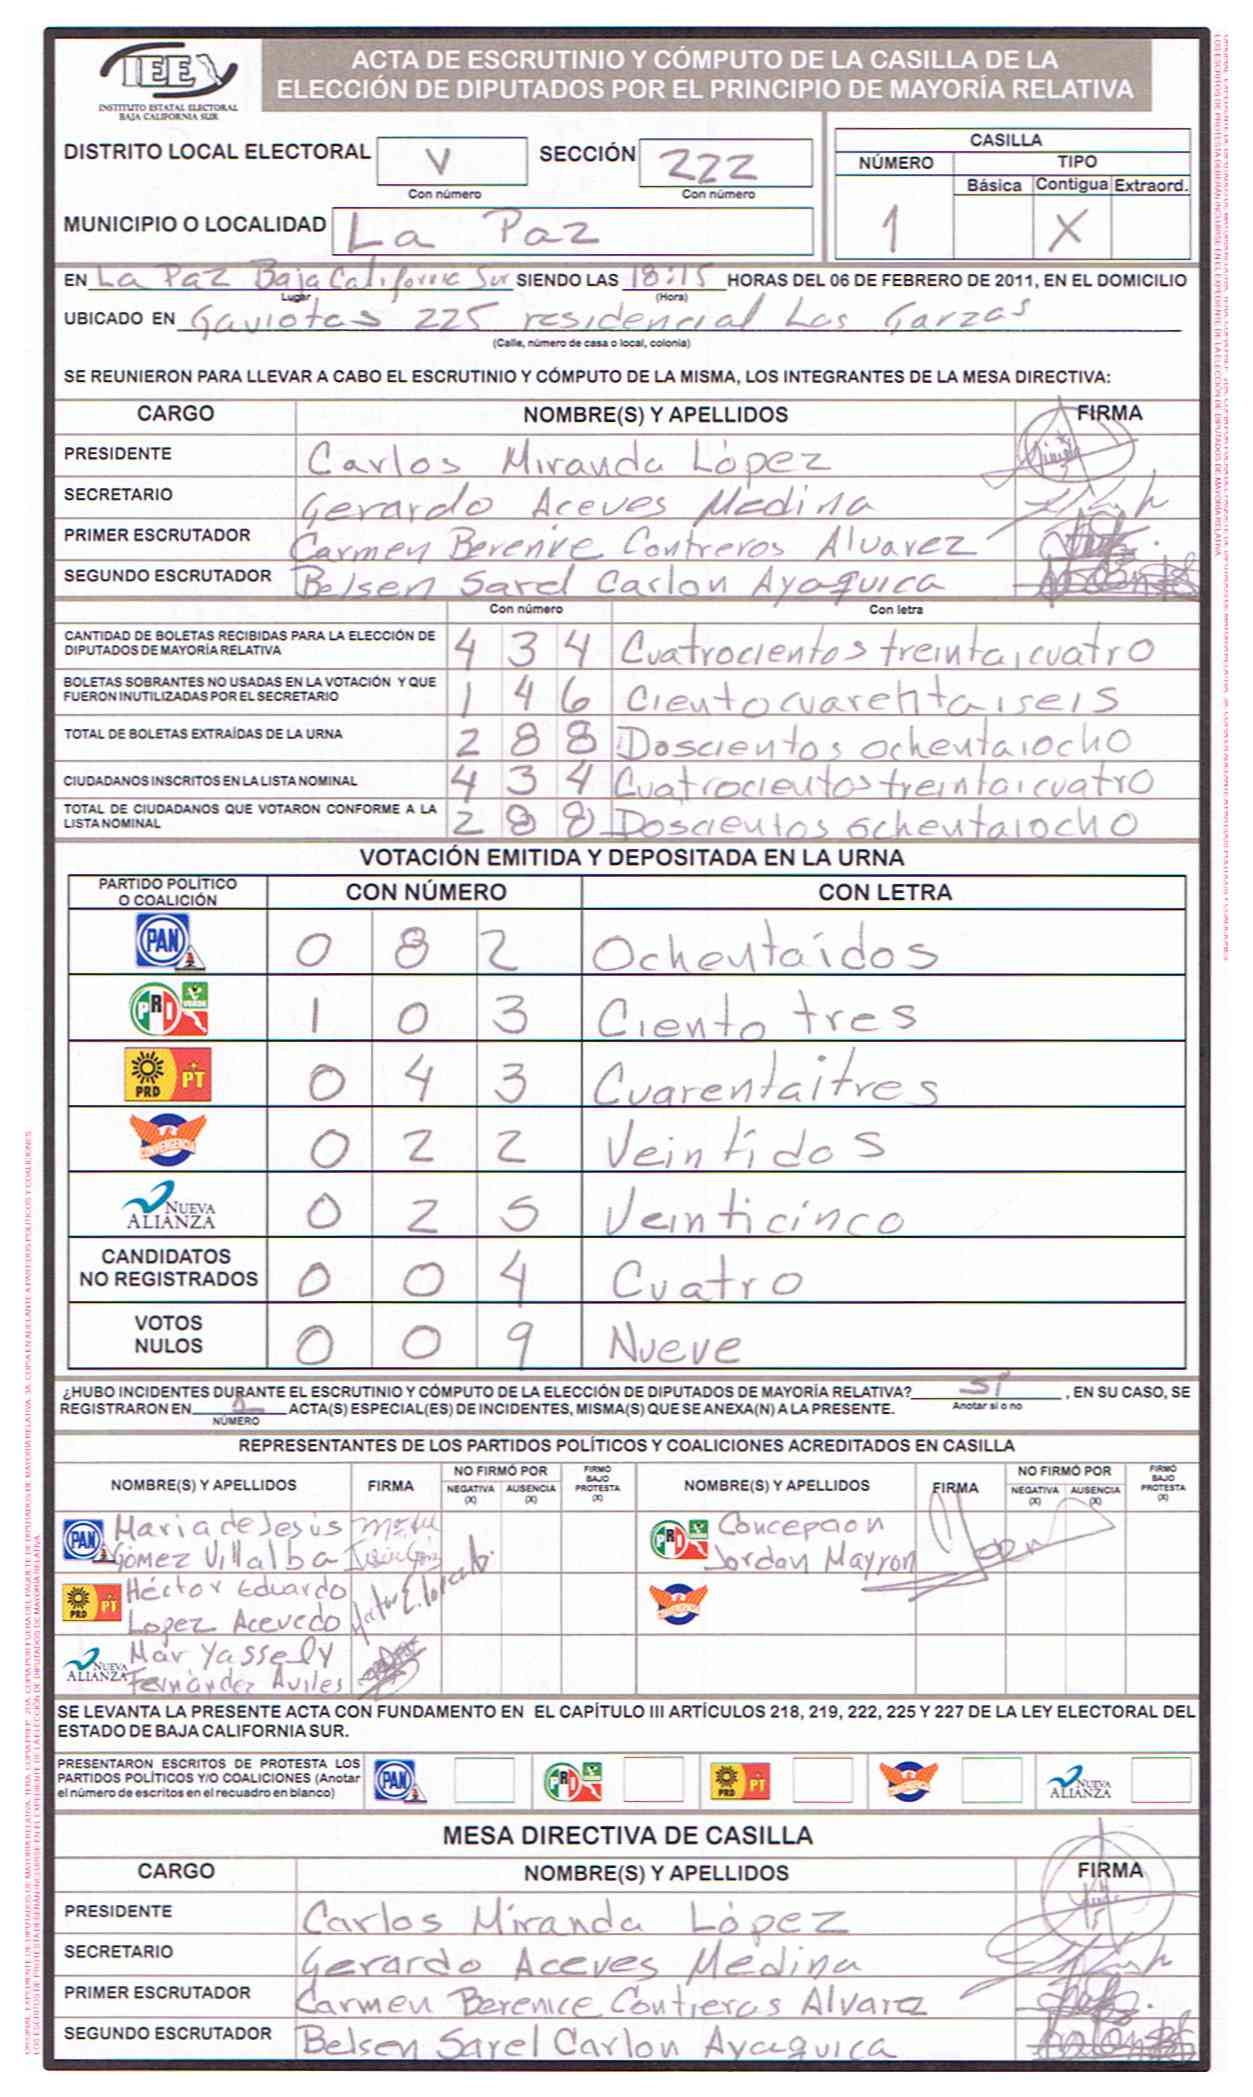 IEEX
INSTITUTO ESTATAL ELECTORAL
BAJA CALIFORNIA SUR
ACTA DE ESCRUTINIO Y CÓMPUTO DE LA CASILLA DE LA
ELECCIÓN DE DIPUTADOS POR EL PRINCIPIO DE MAYORÍA RELATIVA
DISTRITO LOCAL ELECTORAL V SECCIÓN 222
Con número Con número
MUNICIPIO O LOCALIDAD La Paz
CASILLA
NÚMERO TIPO
Básica Contigua Extraord.
1 X
EN La Paz Baja California Sur SIENDO LAS 18:15 HORAS DEL 06 DE FEBRERO DE 2011, EN EL DOMICILIO
Lugar (Hora)
UBICADO EN Gaviotas 225 residencial Las Garzas
(Calle, número de casa o local, colonia)
SE REUNIERON PARA LLEVAR A CABO EL ESCRUTINIO Y CÓMPUTO DE LA MISMA, LOS INTEGRANTES DE LA MESA DIRECTIVA:
CARGO NOMBRE(S) Y APELLIDOS FIRMA
PRESIDENTE Carlos Miranda López
SECRETARIO Gerardo Aceves Medina
PRIMER ESCRUTADOR Carmen Berenice Contreras Alvarez
SEGUNDO ESCRUTADOR Belsen Sarel Carlon Ayaquica
Con número Con letra
CANTIDAD DE BOLETAS RECIBIDAS PARA LA ELECCIÓN DE
DIPUTADOS DE MAYORÍA RELATIVA 4 3 4 Cuatrocientos treintaicuatro
BOLETAS SOBRANTES NO USADAS EN LA VOTACIÓN Y QUE
FUERON INUTILIZADAS POR EL SECRETARIO 1 4 6 Ciento cuarentaiseis
TOTAL DE BOLETAS EXTRAÍDAS DE LA URNA 2 8 8 Doscientos ochentaiocho
CIUDADANOS INSCRITOS EN LA LISTA NOMINAL 4 3 4 Cuatrocientos treintaicuatro
TOTAL DE CIUDADANOS QUE VOTARON CONFORME A LA
LISTA NOMINAL 2 8 8 Doscientos ochentaiocho
VOTACIÓN EMITIDA Y DEPOSITADA EN LA URNA
PARTIDO POLÍTICO
O COALICIÓN CON NÚMERO CON LETRA
PAN 0 8 2 Ochentaídos
PRI VERDE 1 0 3 Ciento tres
PRD PT 0 4 3 Cuarentaitres
CONVERGENCIA 0 2 2 Veintidos
NUEVA ALIANZA 0 2 5 Veinticinco
CANDIDATOS
NO REGISTRADOS 0 0 4 Cuatro
VOTOS
NULOS 0 0 9 Nueve
¿HUBO INCIDENTES DURANTE EL ESCRUTINIO Y CÓMPUTO DE LA ELECCIÓN DE DIPUTADOS DE MAYORÍA RELATIVA? Sí , EN SU CASO, SE
Anotar si o no
REGISTRARON EN 1 ACTA(S) ESPECIAL(ES) DE INCIDENTES, MISMA(S) QUE SE ANEXA(N) A LA PRESENTE.
NÚMERO
REPRESENTANTES DE LOS PARTIDOS POLÍTICOS Y COALICIONES ACREDITADOS EN CASILLA
NOMBRE(S) Y APELLIDOS FIRMA NO FIRMÓ POR NEGATIVA (X) AUSENCIA (X) FIRMÓ BAJO PROTESTA (X) NOMBRE(S) Y APELLIDOS FIRMA NO FIRMÓ POR NEGATIVA (X) AUSENCIA (X) FIRMÓ BAJO PROTESTA (X)
PAN Maria de Jesús
Gómez Villalba
PRI Concepcion
Jordan Mayron
PRD PT Héctor Eduardo
Lopez Acevedo
CONVERGENCIA
NUEVA ALIANZA Mar Yassely
Fernández Aviles
SE LEVANTA LA PRESENTE ACTA CON FUNDAMENTO EN EL CAPÍTULO III ARTÍCULOS 218, 219, 222, 225 Y 227 DE LA LEY ELECTORAL DEL
ESTADO DE BAJA CALIFORNIA SUR.
PRESENTARON ESCRITOS DE PROTESTA LOS
PARTIDOS POLÍTICOS Y/O COALICIONES (Anotar
el número de escritos en el recuadro en blanco)
PAN PRI PRD PT CONVERGENCIA NUEVA ALIANZA
MESA DIRECTIVA DE CASILLA
CARGO NOMBRE(S) Y APELLIDOS FIRMA
PRESIDENTE Carlos Miranda López
SECRETARIO Gerardo Aceves Medina
PRIMER ESCRUTADOR Carmen Berenice Contreras Alvarez
SEGUNDO ESCRUTADOR Belsen Sarel Carlon Ayaquica